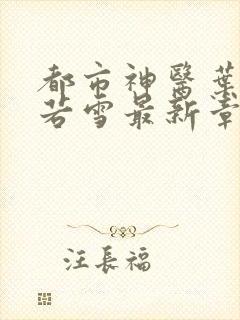 都市神醫葉
若雪最新章
汪長福